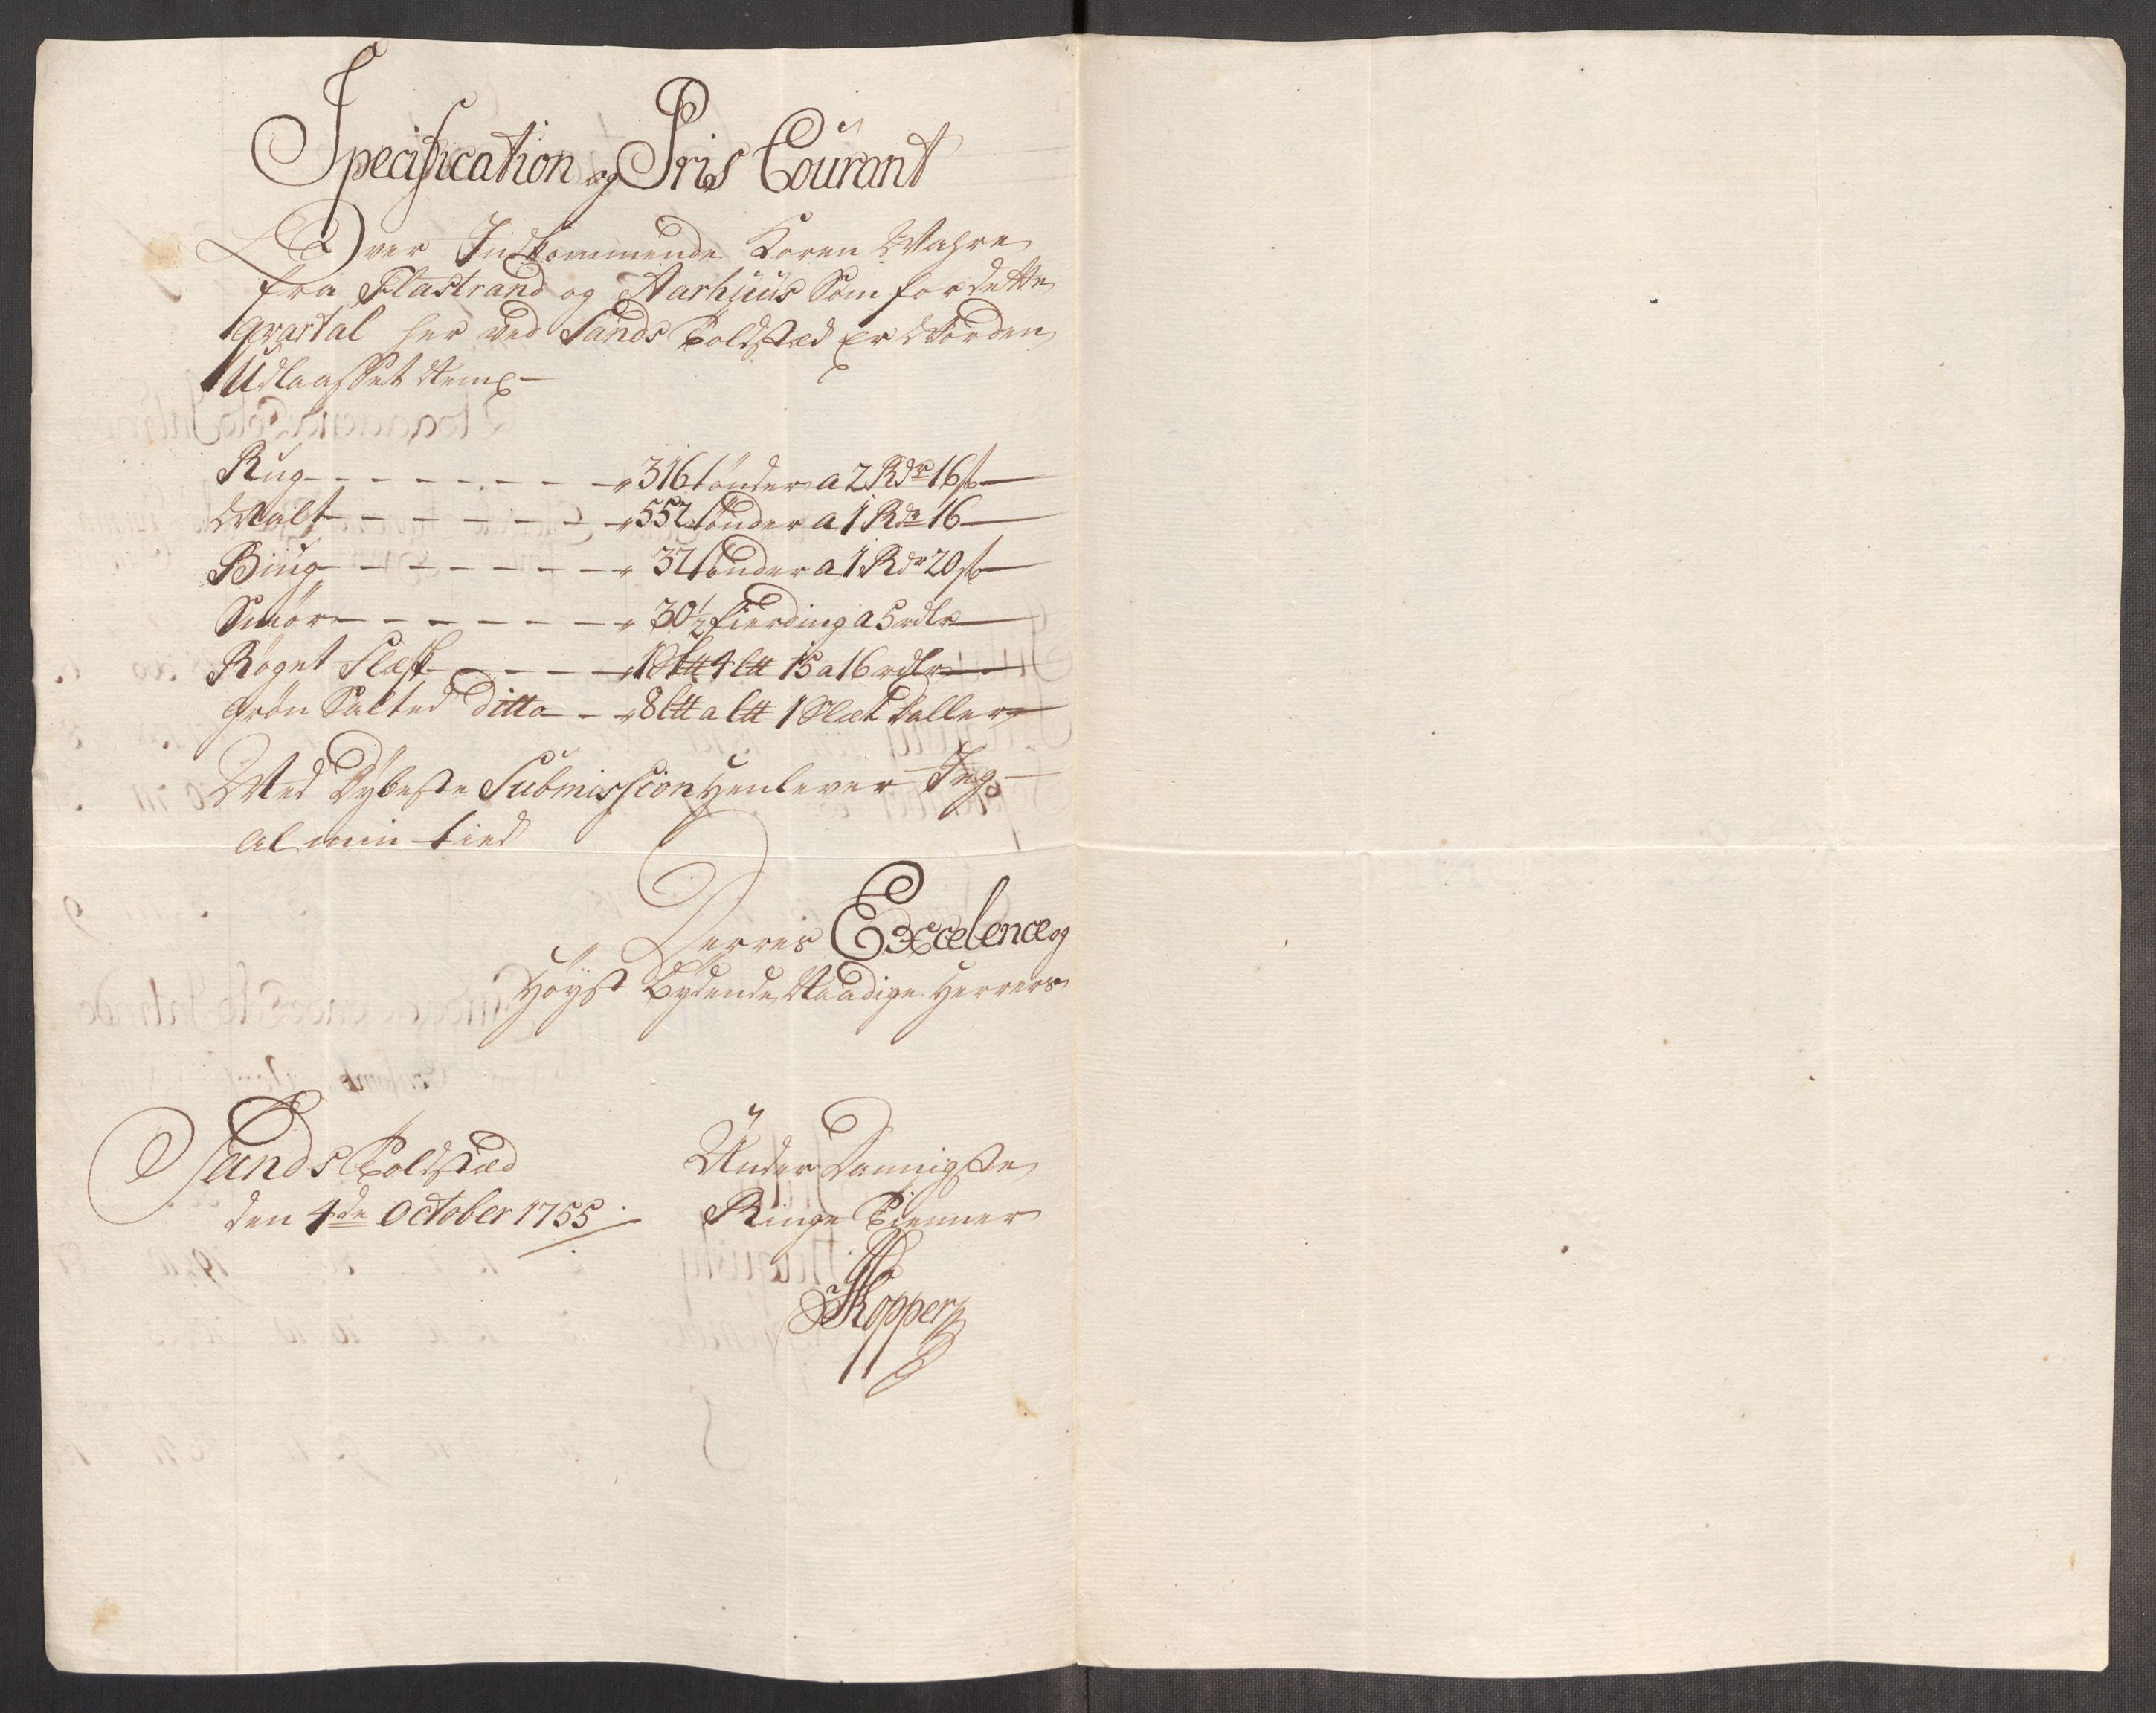 Specification og Pris Courant
Over Indkommende Koren Wahre
fra Flastrand og Aarhjuus Som for dette
Qvartal her ved Sands Toldsted er Worden
Udlaasset Neml
Rug - - - - - - - - 316 tønder a 2 Rdr 16 s
Malt - - - - - - - 552 tønder a 1 Rdr 16
Biug - - - - - - - - 37 tønder a 1 Rdr 20 s
Smør - - - - - - - 30½ fierding a 5 rdlr
Røget Flesk - - - - 4 15 a 16 rdlr
Grøn Salted Ditto - - 8 a 1 Slet daller
Med Dybeste Submission Henlever Jeg
al min tied
Derres Excelence og
Høyst Bydende Naadige Herrers
Sands Toldsted
den 4de October 1755
Under Dannigste
Ringe Tienner
Kopper